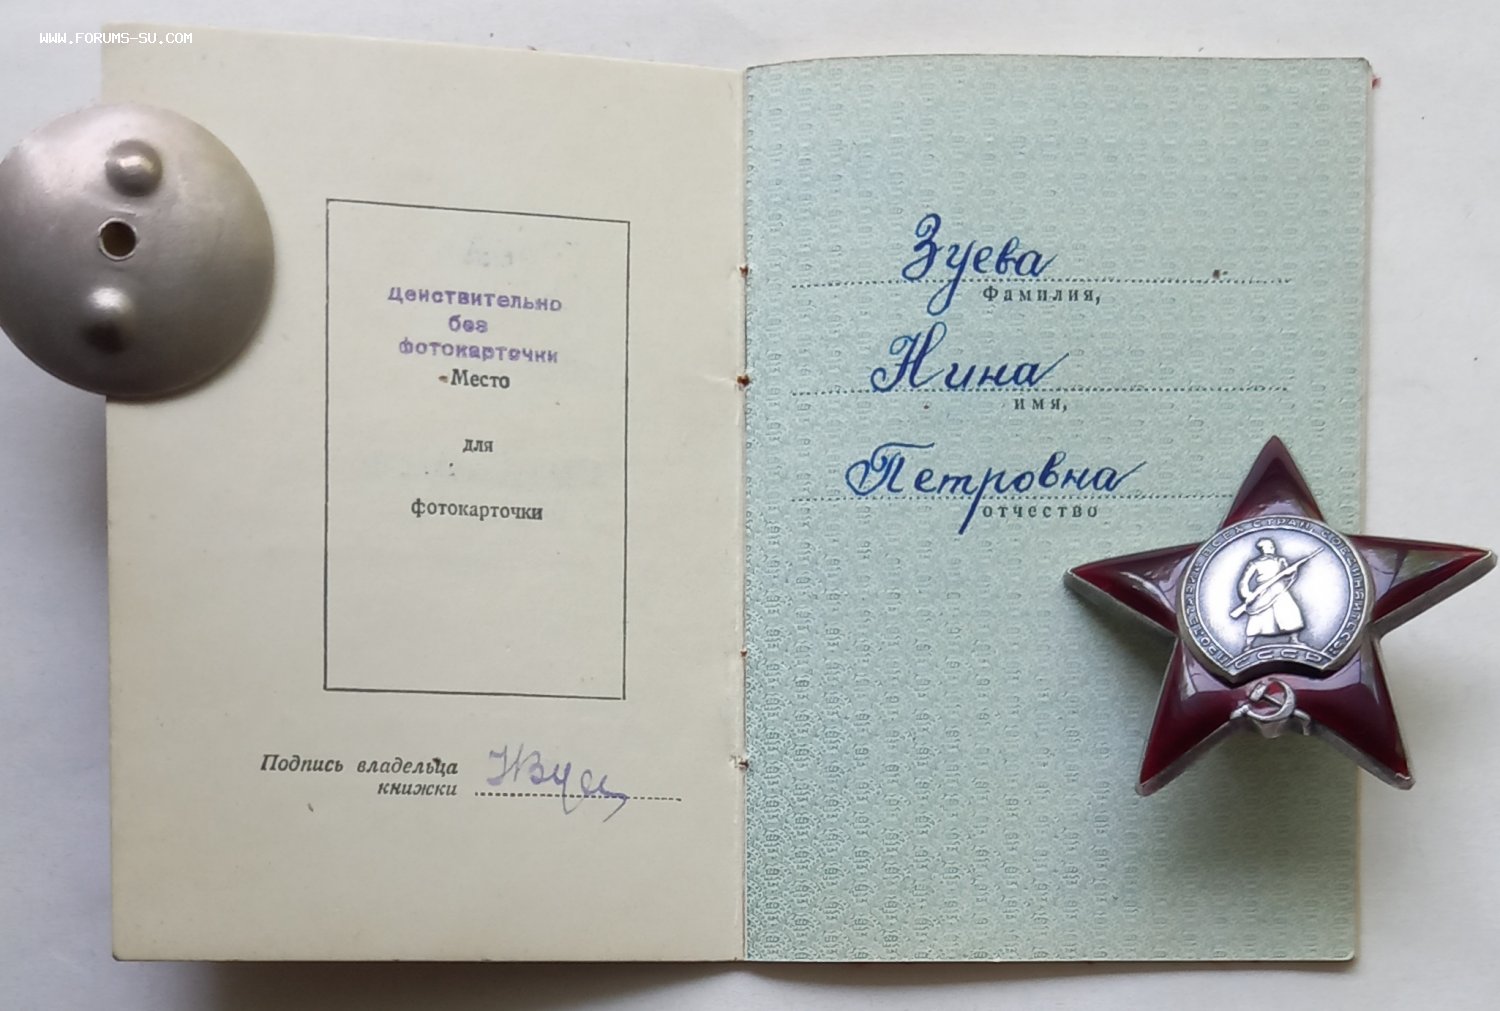 WWW.FORUMS-SU.COM
Действительно
без
фотокарточки
Место
для
фотокарточки
Подпись владельца
книжки
Зуева
Фамилия,
Нина
имя,
Петровна
отчество
ПРОЛЕТАРИИ ВСЕХ СТРАН, СОЕДИНЯЙТЕСЬ!
СССР